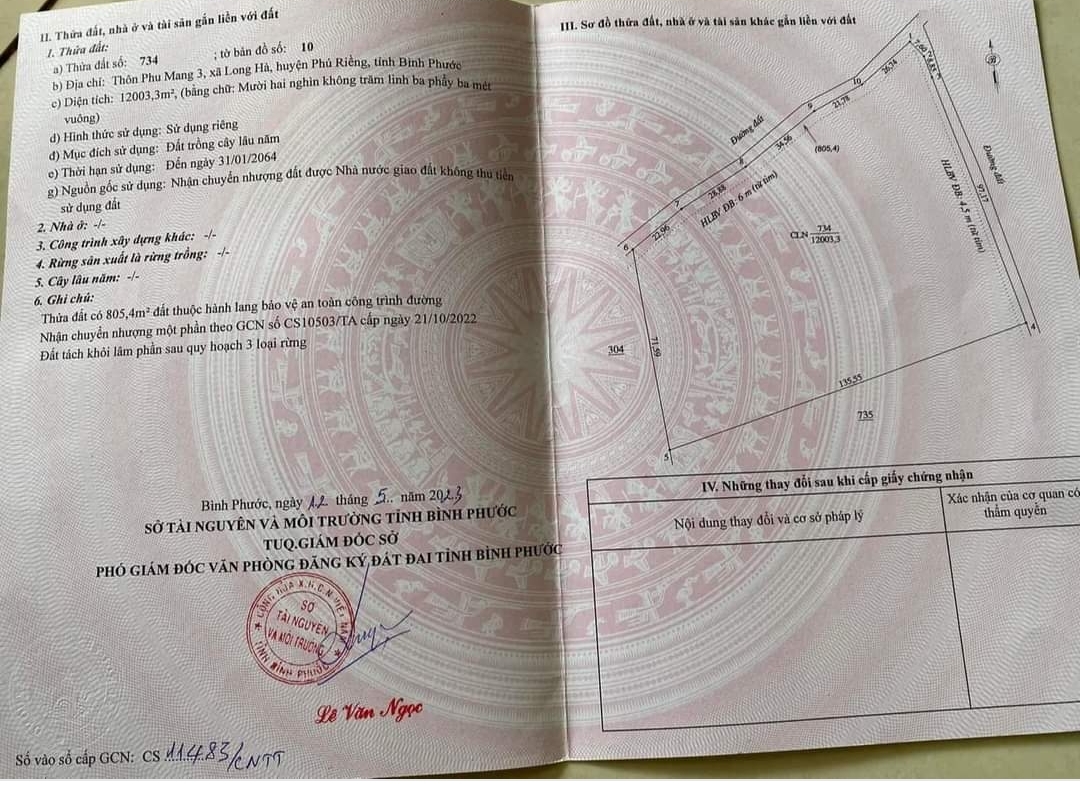 II. Thửa đất, nhà ở và tài sản gắn liền với đất
1. Thửa đất:
a) Thửa đất số: 734 ; tờ bản đồ số: 10
b) Địa chỉ: Thôn Phu Mang 3, xã Long Hà, huyện Phú Riềng, tỉnh Bình Phước
c) Diện tích: 12003,3m², (bằng chữ: Mười hai nghìn không trăm linh ba phẩy ba mét
vuông)
d) Hình thức sử dụng: Sử dụng riêng
đ) Mục đích sử dụng: Đất trồng cây lâu năm
e) Thời hạn sử dụng: Đến ngày 31/01/2064
g) Nguồn gốc sử dụng: Nhận chuyển nhượng đất được Nhà nước giao đất không thu tiền
sử dụng đất
2. Nhà ở: -/-
3. Công trình xây dựng khác: -/-
4. Rừng sản xuất là rừng trồng: -/-
5. Cây lâu năm: -/-
6. Ghi chú:
Thửa đất có 805,4m² đất thuộc hành lang bảo vệ an toàn công trình đường
Nhận chuyển nhượng một phần theo GCN số CS10503/TA cấp ngày 21/10/2022
Đất tách khỏi lâm phần sau quy hoạch 3 loại rừng
Bình Phước, ngày 12 tháng 5.. năm 2023
SỞ TÀI NGUYÊN VÀ MÔI TRƯỜNG TỈNH BÌNH PHƯỚC
TUQ.GIÁM ĐỐC SỞ
PHÓ GIÁM ĐỐC VĂN PHÒNG ĐĂNG KÝ ĐẤT ĐAI TỈNH BÌNH PHƯỚC
CỘNG HÒA X.H.C.N VIỆT NAM
SỞ
TÀI NGUYÊN
VÀ MÔI TRƯỜNG
TỈNH BÌNH PHƯỚC
Lê Văn Ngọc
Số vào sổ cấp GCN: CS 11483/CNTT
III. Sơ đồ thửa đất, nhà ở và tài sản khác gắn liền với đất
1
7,60
10
26,74
9
21,78
Đường đất
34,56
(805,4)
8
28,88
HLBV ĐB: 6 m (từ tim)
7
22,96
6
Đường đất
97,17
HLBV ĐB: 4,5 m (từ tim)
CLN 734
12003,3
4
304
71,59
135,55
735
5
IV. Những thay đổi sau khi cấp giấy chứng nhận
Nội dung thay đổi và cơ sở pháp lý
Xác nhận của cơ quan có
thẩm quyền